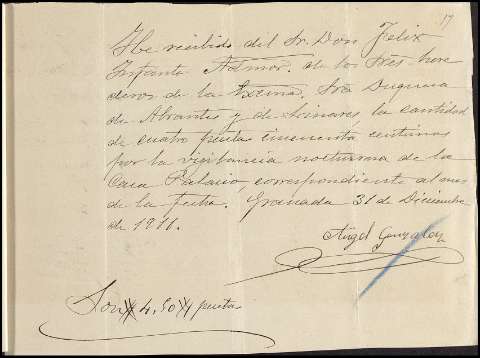 17
He recibido del Sr. Don Felix
Infante Admor. de los Sres. here
deros de la Excma. Sra Duquesa
de Abrantes y de Linares, la cantidad
de cuatro pesetas cincuenta centimos
por la vigilancia nocturna de la
Casa Palacio, correspondiente al mes
de la fecha. Granada 31 de Diciembre
de 1911.
Angel Gonzalez
Son # 4,50 # pesetas